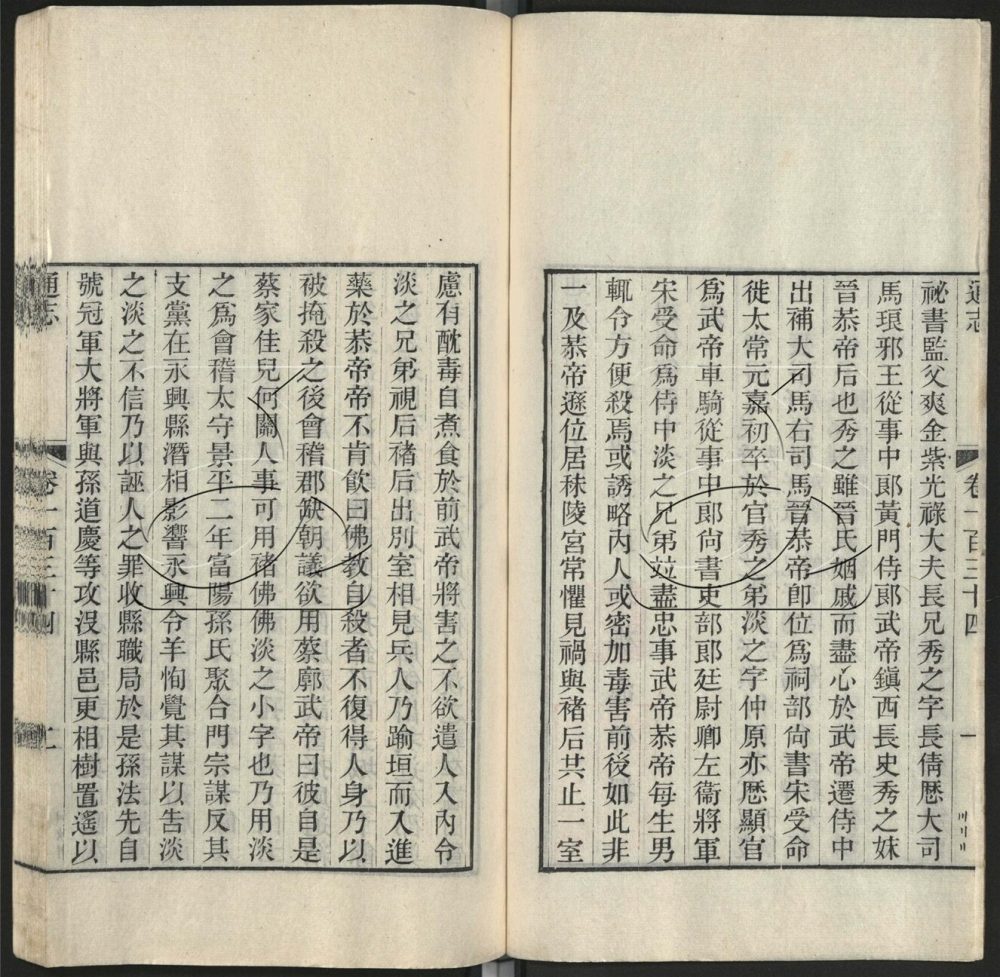 通志
卷一百三十四
一
祕書監父爽金紫光祿大夫長兄秀之字長倩歷大司
馬琅邪王從事中郎黃門侍郎武帝鎮西長史秀之妹
晉恭帝后也秀之雖晉氏姻戚而盡心於武帝遷侍中
出補大司馬右司馬晉恭帝卽位爲祠部尙書宋受命
徙太常元嘉初卒於官秀之弟淡之字仲原亦歷顯官
爲武帝車騎從事中郎尙書吏部郎廷尉卿左衞將軍
宋受命爲侍中淡之兄弟竝盡忠事武帝恭帝每生男
輒令方便殺焉或誘略內人或密加毒害前後如此非
一及恭帝遜位居秣陵宮常懼見禍與褚后共止一室
慮有酖毒自煮食於前武帝將害之不欲遣人入內令
淡之兄弟視后褚后出別室相見兵人乃踰垣而入進
藥於恭帝帝不肯飮曰佛教自殺者不復得人身乃以
被掩殺之後會稽郡缺朝議欲用蔡廓武帝曰彼自是
蔡家佳兒何關人事可用褚佛佛淡之小字也乃用淡
之爲會稽太守景平二年富陽孫氏聚合門宗謀反其
支黨在永興縣潛相影響永興令羊恂覺其謀以告淡
之淡之不信乃以誣人之罪收縣職局於是孫法先自
號冠軍大將軍與孫道慶等攻沒縣邑更相樹置遙以
通志
卷一百三十四
二